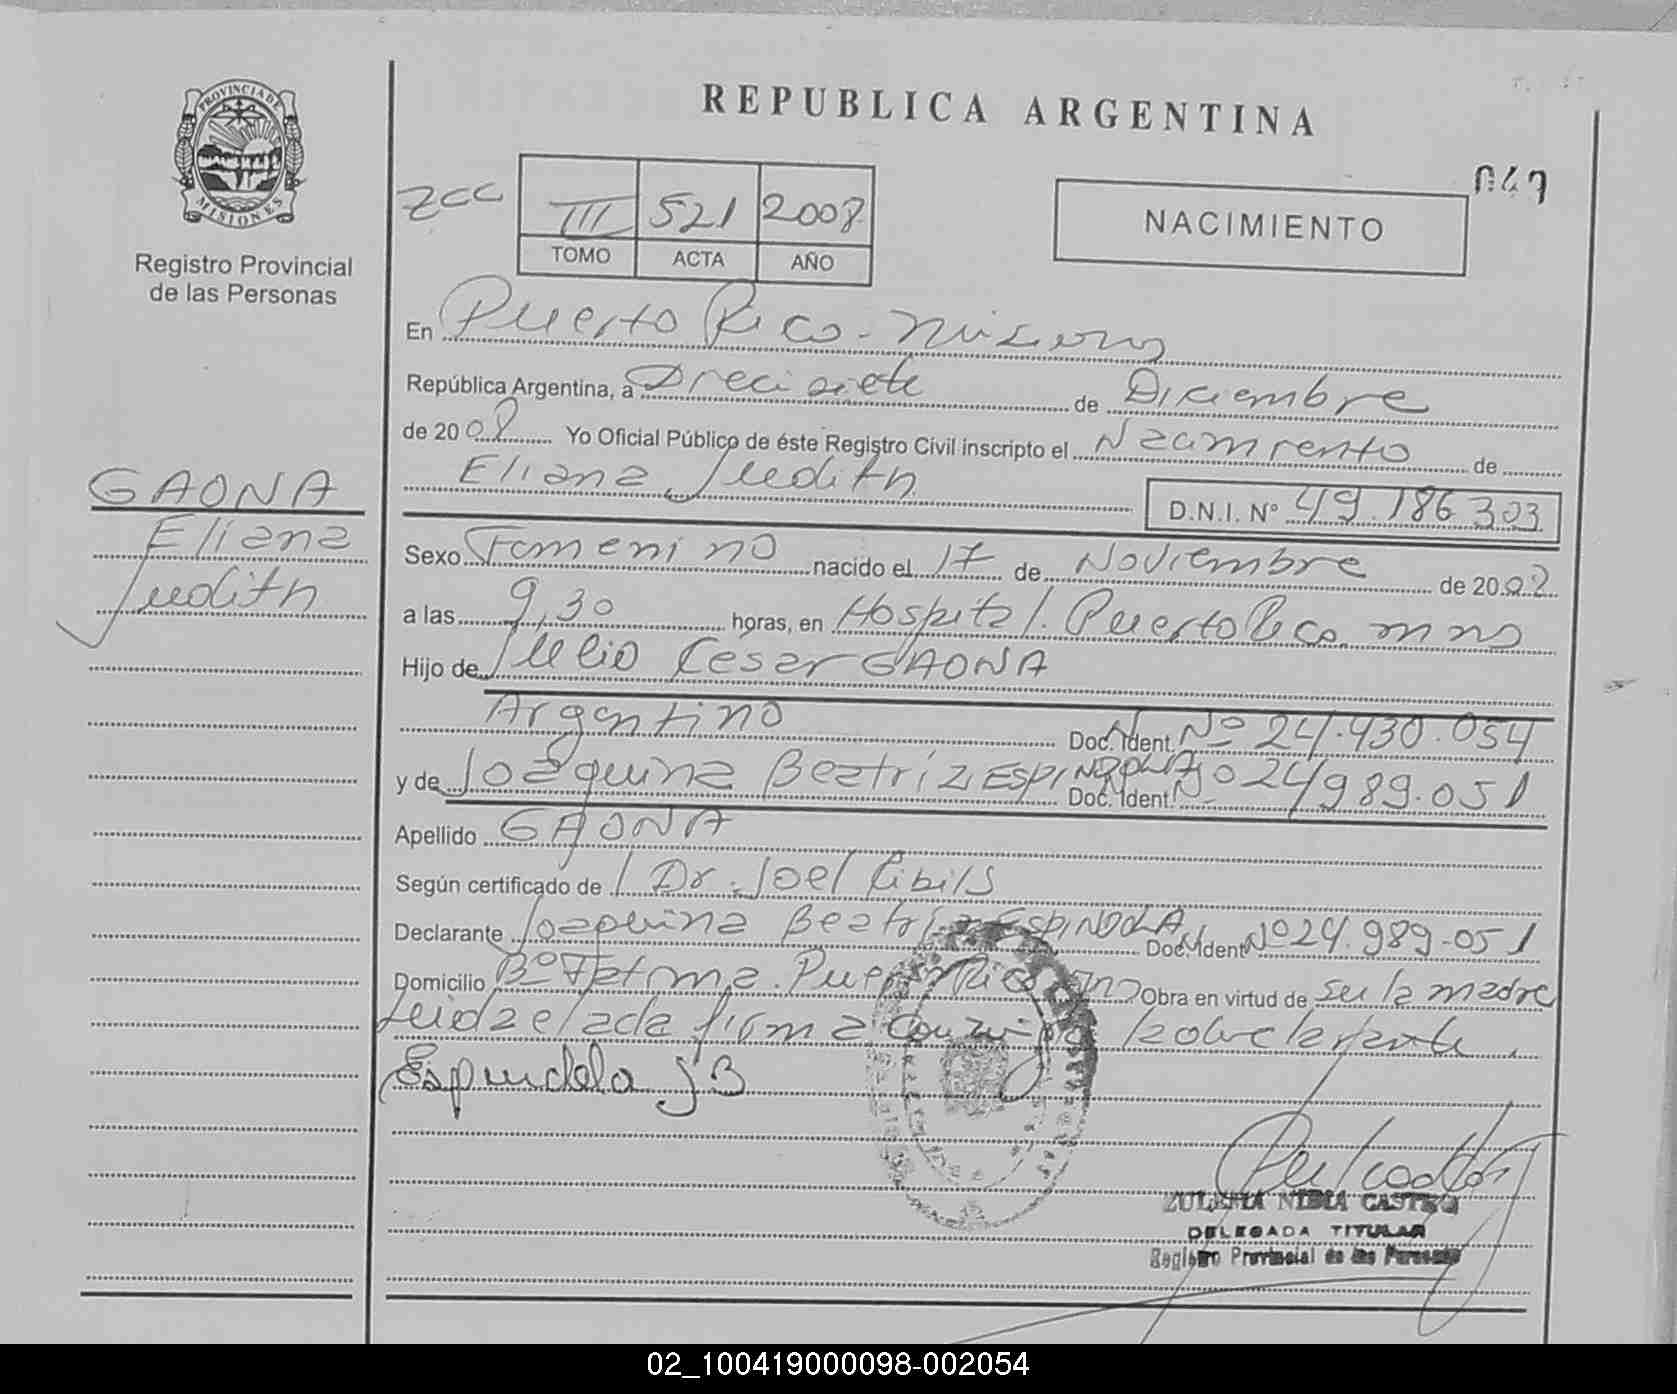 REPUBLICA ARGENTINA
PROVINCIA DE
MISIONES
Registro Provincial
de las Personas
049
zcc
III 521 2008
TOMO ACTA AÑO
NACIMIENTO
En Puerto Rico - Misiones
República Argentina, a Diecisiete de Diciembre
de 2008 Yo Oficial Público de éste Registro Civil inscripto el Nacimiento de
Eliana Judith
D.N.I. Nº 49.186.303
GAONA
Eliana
Judith
Sexo Femenino nacido el 17 de Noviembre de 2008
a las 9,30 horas, en Hospital. Puerto Rico. mns
Hijo de Julio Cesar GAONA
Argentino Doc. Ident. Nº 24.930.054
y de Joaquina Beatriz ESPINDOLA Doc. Ident. Nº 24.989.051
Apellido GAONA
Según certificado de Dr. Joel Cibils
Declarante Joaquina Beatriz ESPINDOLA Doc. Ident Nº 24.989.051
Domicilio Bº Fatima. Puerto Rico Obra en virtud de ser la madre
Leida el acta firma conmigo la declarante.
Espindola J B
ZULEMA NIDIA CASTRO
DELEGADA TITULAR
Registro Provincial de las Personas
02_100419000098-002054